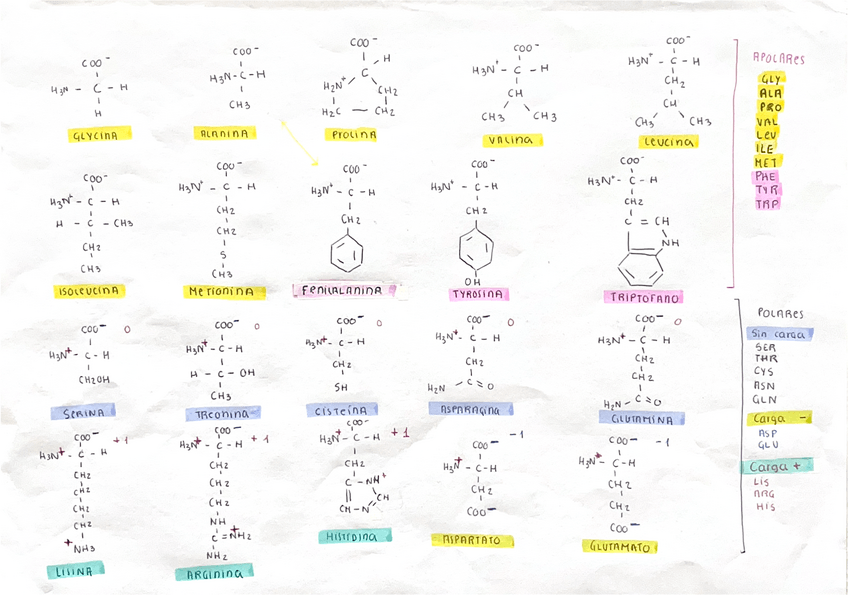 COO⁻
H₃N - C - H
H
GLYCINA
COO⁻
H₃N - C - H
CH₃
ALANINA
COO⁻
H
C
H₂N⁺
CH₂
H₂C — CH₂
PROLINA
COO⁻
H₃N⁺ - C - H
CH
CH₃ CH₃
VALINA
COO⁻
H₃N⁺ - C - H
CH₂
CH
CH₃ CH₃
LEUCINA
APOLARES
GLY
ALA
PRO
VAL
LEU
ILE
MET
PHE
TYR
TRP
COO⁻
H₃N⁺ - C - H
H - C - CH₃
CH₂
CH₃
ISOLEUCINA
COO⁻
H₃N⁺ - C - H
CH₂
CH₂
S
CH₃
METIONINA
COO⁻
H₃N⁺ - C - H
CH₂
FENILALANINA
COO⁻
H₃N⁺ - C - H
CH₂
OH
TYROSINA
COO⁻
H₃N⁺ - C - H
CH₂
C = CH
NH
TRIPTOFANO
COO⁻ 0
H₃N⁺ - C - H
CH₂OH
SERINA
COO⁻ 0
H₃N⁺ - C - H
H - C - OH
CH₃
TREONINA
COO⁻ 0
H₃N⁺ - C - H
CH₂
SH
CISTEÍNA
COO⁻ 0
H₃N⁺ - C - H
CH₂
H₂N C = O
ASPARAGINA
COO⁻ 0
H₃N⁺ - C - H
CH₂
CH₂
H₂N - C = O
GLUTAMINA
POLARES
Sin carga
SER
THR
CYS
ASN
GLN
Carga -
ASP
GLU
Carga +
LIS
ARG
HIS
COO⁻ +1
H₃N⁺ - C - H
CH₂
CH₂
CH₂
CH₂
⁺NH₃
LISINA
COO⁻ +1
H₃N⁺ - C - H
CH₂
CH₂
CH₂
NH
C = ⁺NH₂
NH₂
ARGININA
COO⁻ +1
H₃N⁺ - C - H
CH₂
C - NH⁺
CH
CH - N
HISTIDINA
COO⁻ -1
H₃N⁺ - C - H
CH₂
COO⁻
ASPARTATO
COO⁻ -1
H₃N⁺ - C - H
CH₂
CH₂
COO⁻
GLUTAMATO